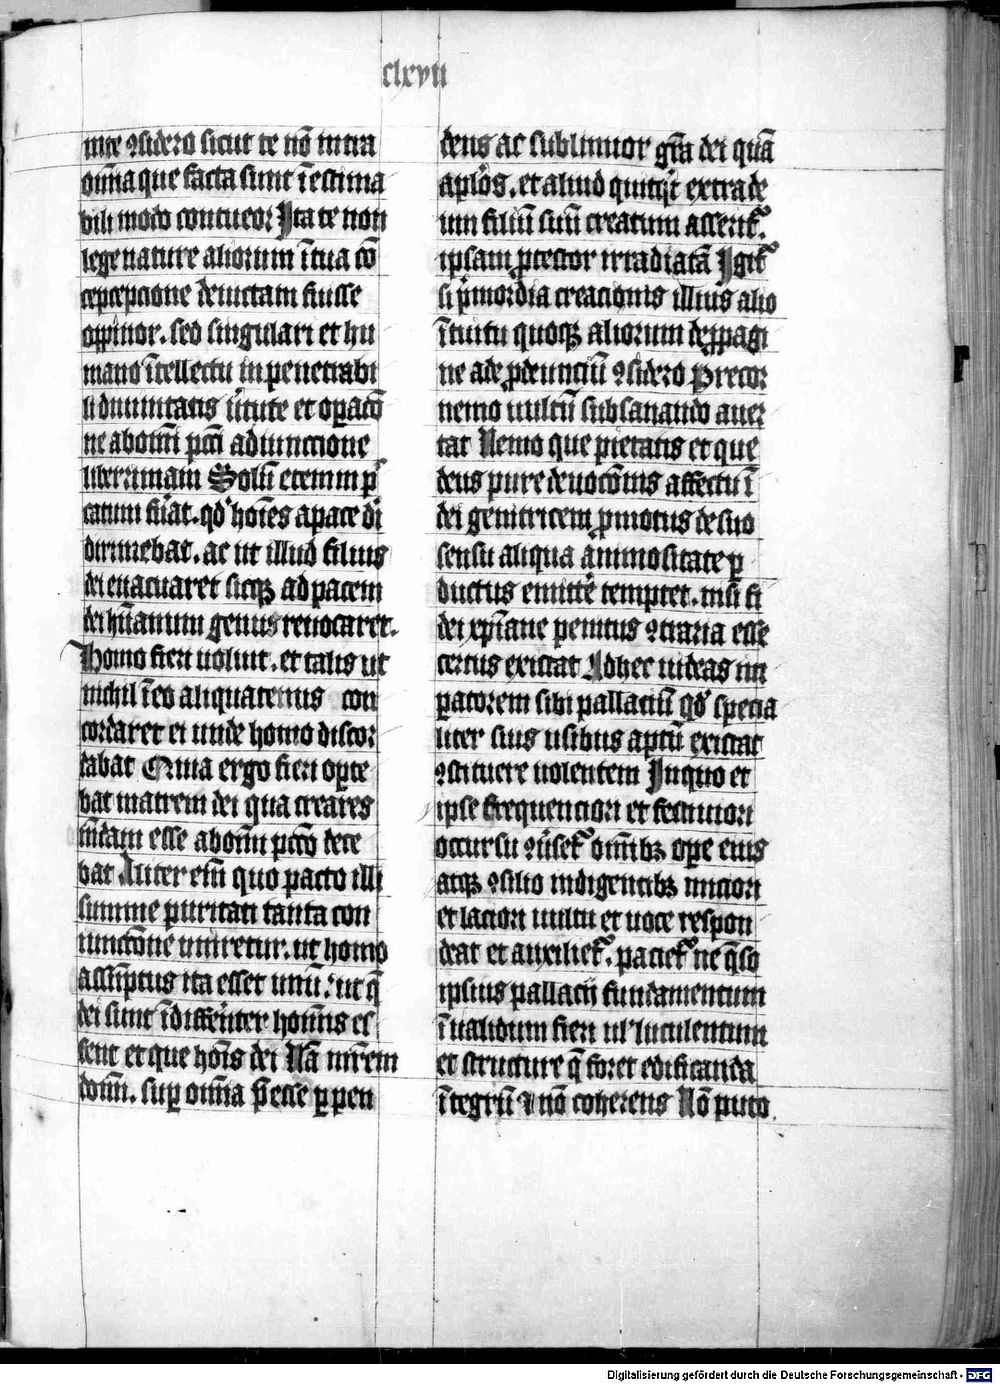 clxvii
mte ꝯsidero sicut te nō intra
oīa que facta sunt īestima
bili modo contueor Ita te non
lege nature aliorum ī tua cō
cepcione deuictam fuisse
oppinor. sed singulari et hu
mano ītellectu inpenetrabi
li diuinitatis ūtute et oꝑacō
ne ab om̄i pccī adiunccione
liberrimam Solū etenim p̄
catum fūat. qd̓ hoīes a pace di
dirimebat. ac ut illud filius
dei euacuaret sicqꝫ ad pacem
dei hūanum genus reuocaret.
Homo fieri uoluit. et talis ut
nichil ī eo aliquatenus con
cordaret ei unde homo discor
dabat Quia ergo fieri opꝛte
bat matrem dei qua crearēs
mūdam esse ab om̄i pccō dece
bat Aliter em̄ quo pacto illi
summe puritati tanta con
iunctōne uniretur. ut homo
assūptus ita esset unū. ut q̄
dei sunt īdiffēnter hoīnis es
sent et que hoīs dei Nā mr̄em
domī. suꝑ om̄ia p̄fecte ꝑpen
dens ac sublimior gr̄a dei quā
apl̄os. et aliud quicq̄ extra de
um filiū suū creatum asserit᷑.
ipsam ꝓtestor irradiatā Igit᷑
si p̄mordia creacionis illius alio
ītuitu quoqꝫ aliorum de ꝓpagi
ne ade ꝓdeunciū ꝯsidero Precor
nemo uultū subsanando auer
tat Nemo que pietatis et que
deus pure deuocōnis affectu ī
dei genitricem ꝓmotus de suo
sensu aliqua animositate ꝑ
ductus emittē temptet. nisi fi
dei xp̄iane penitus ꝯtraria esse
certus existat Adhec uideas im
patorem sibi pallaciū qd̓ specia
liter suis usibus aptū existat
ꝯstituere uolentem In quo et
ipse frequenciori et festiuiori
occursu ꝯūset᷑ om̄ibꝫ ope eius
atqꝫ ꝯsilio indigentibꝫ miciori
et laciori uultu et uoce respon
deat et auxiliet᷑. paciet᷑ ne q̄so
ipsius pallacij fundamentum
īualidum fieri ul̓ luculentum
et structure q̄ foret edificanda
ītegrū ⁊ nō coherens Nō puto
Digitalisierung gefördert durch die Deutsche Forschungsgemeinschaft - DFG